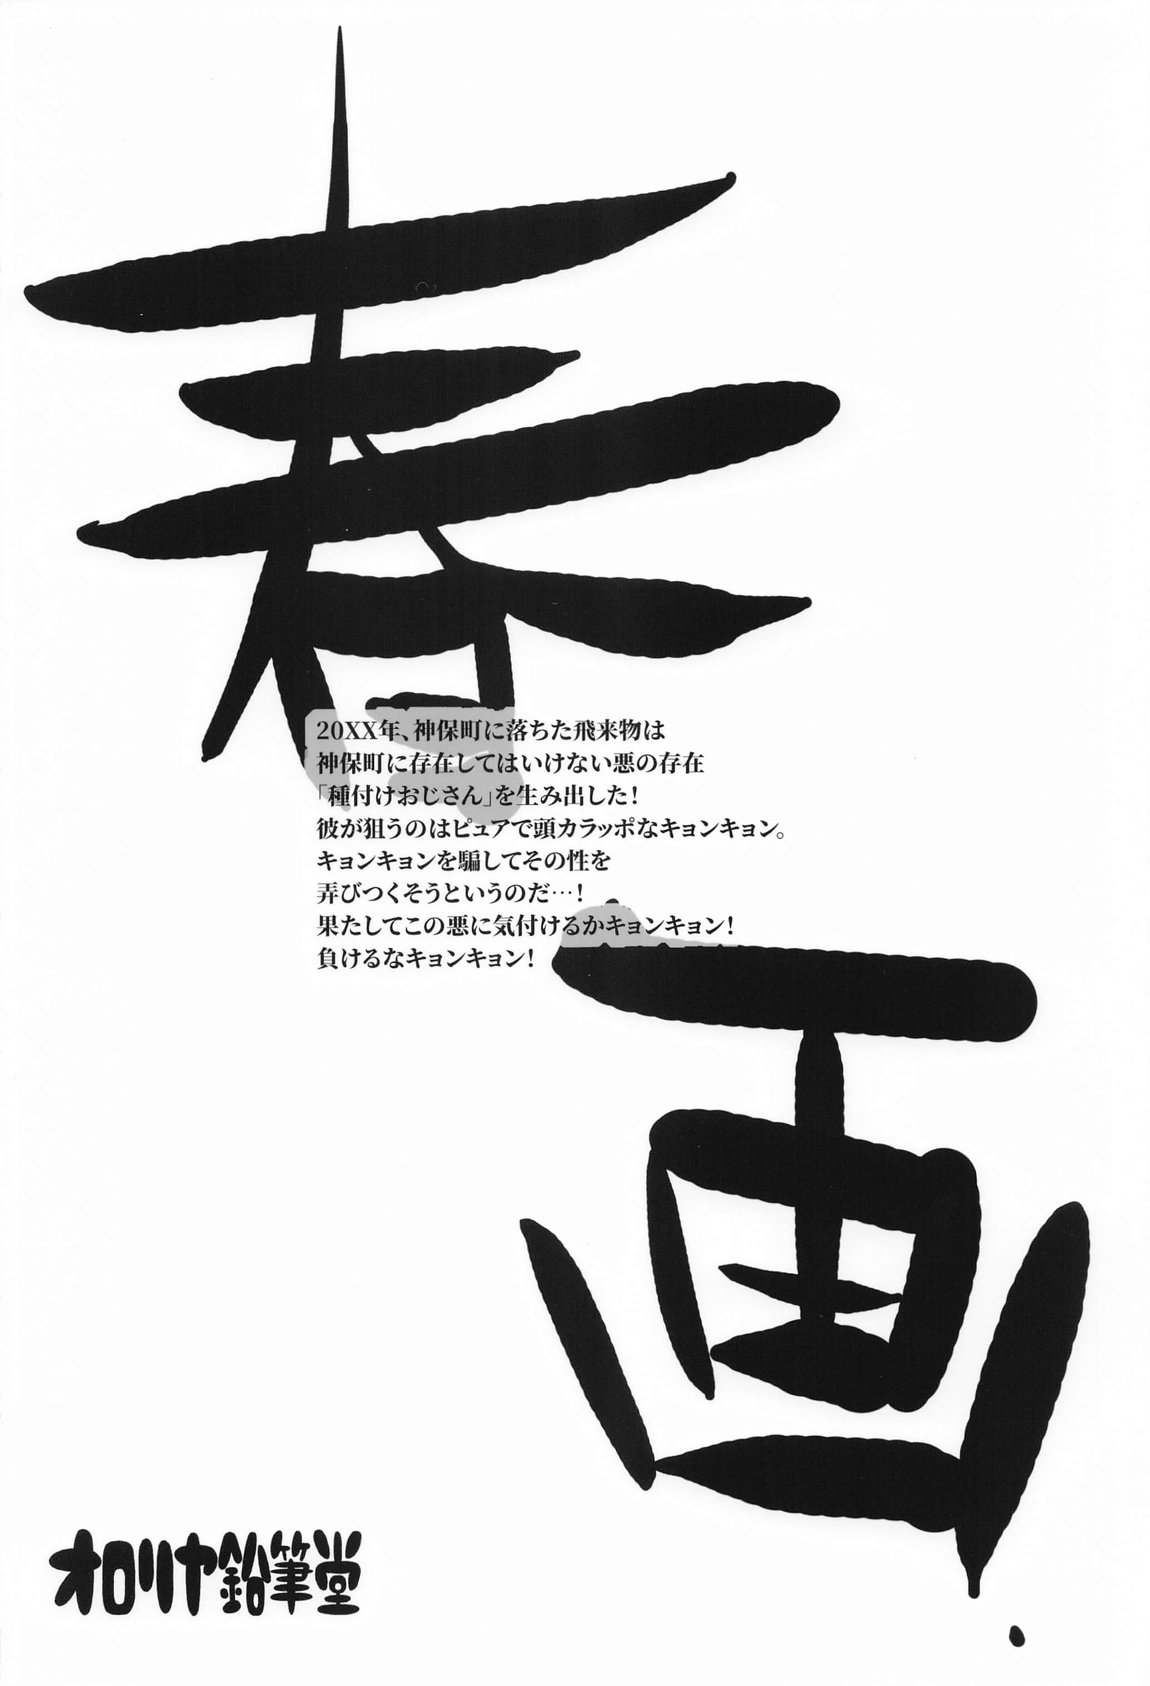 春画
20XX年、神保町に落ちた飛来物は
神保町に存在してはいけない悪の存在
「種付けおじさん」を生み出した!
彼が狙うのはピュアで頭カラッポなキョンキョン。
キョンキョンを騙してその性を
弄びつくそうというのだ…!
果たしてこの悪に気付けるかキョンキョン!
負けるなキョンキョン!
オロリヤ鉛筆堂